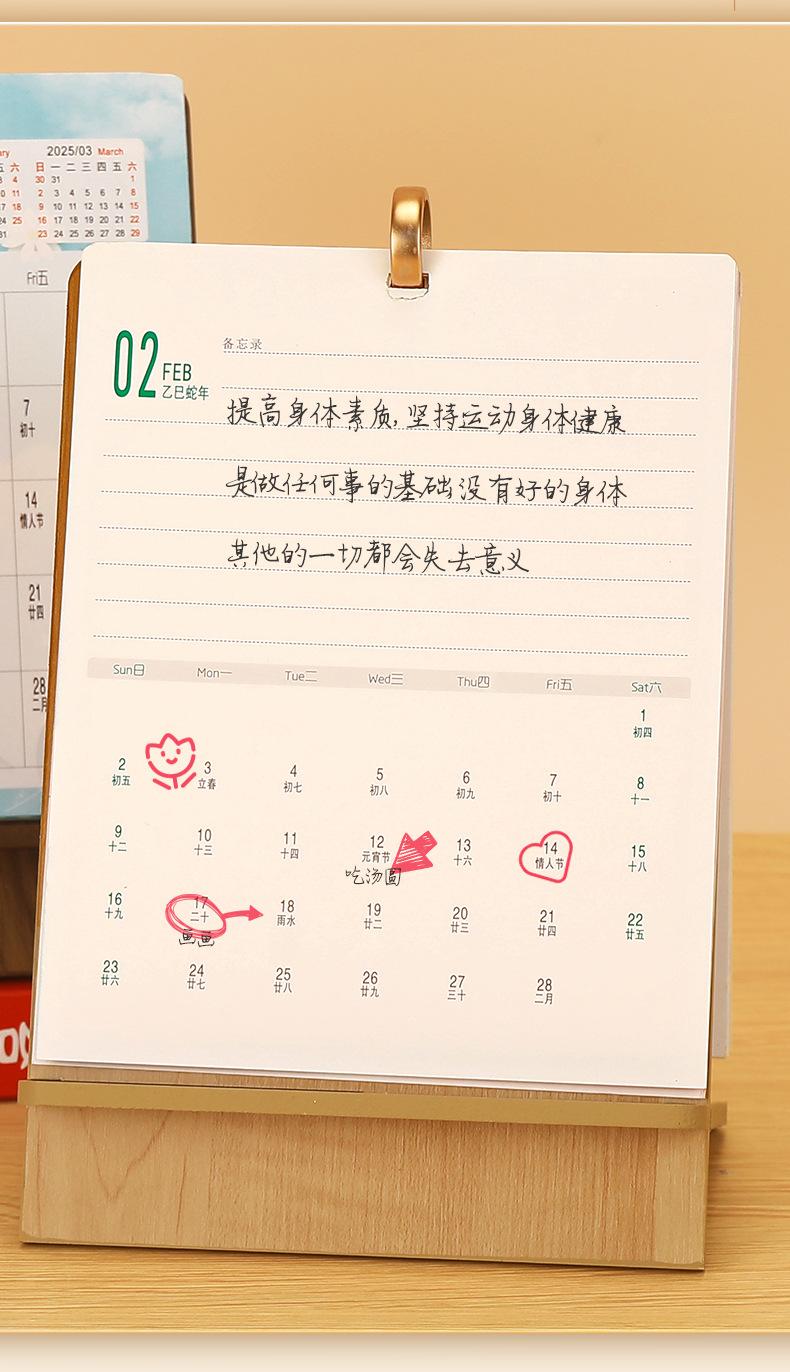 2025/03 March
日 一 二 三 四 五 六
30 31 1
2 3 4 5 6 7 8
9 10 11 12 13 14 15
16 17 18 19 20 21 22
23 24 25 26 27 28 29
Fri五
7
初十
14
情人节
21
廿四
28
二月
02 FEB
乙巳蛇年
备忘录
提高身体素质,坚持运动身体健康
是做任何事的基础没有好的身体
其他的一切都会失去意义
Sun日 Mon一 Tue二 Wed三 Thu四 Fri五 Sat六
1
初四
2 3 4 5 6 7 8
初五 立春 初七 初八 初九 初十 十一
9 10 11 12 13 14 15
十二 十三 十四 元宵节 十六 情人节 十八
吃汤圆
16 17 18 19 20 21 22
十九 二十 雨水 廿二 廿三 廿四 廿五
画画
23 24 25 26 27 28
廿六 廿七 廿八 廿九 三十 二月